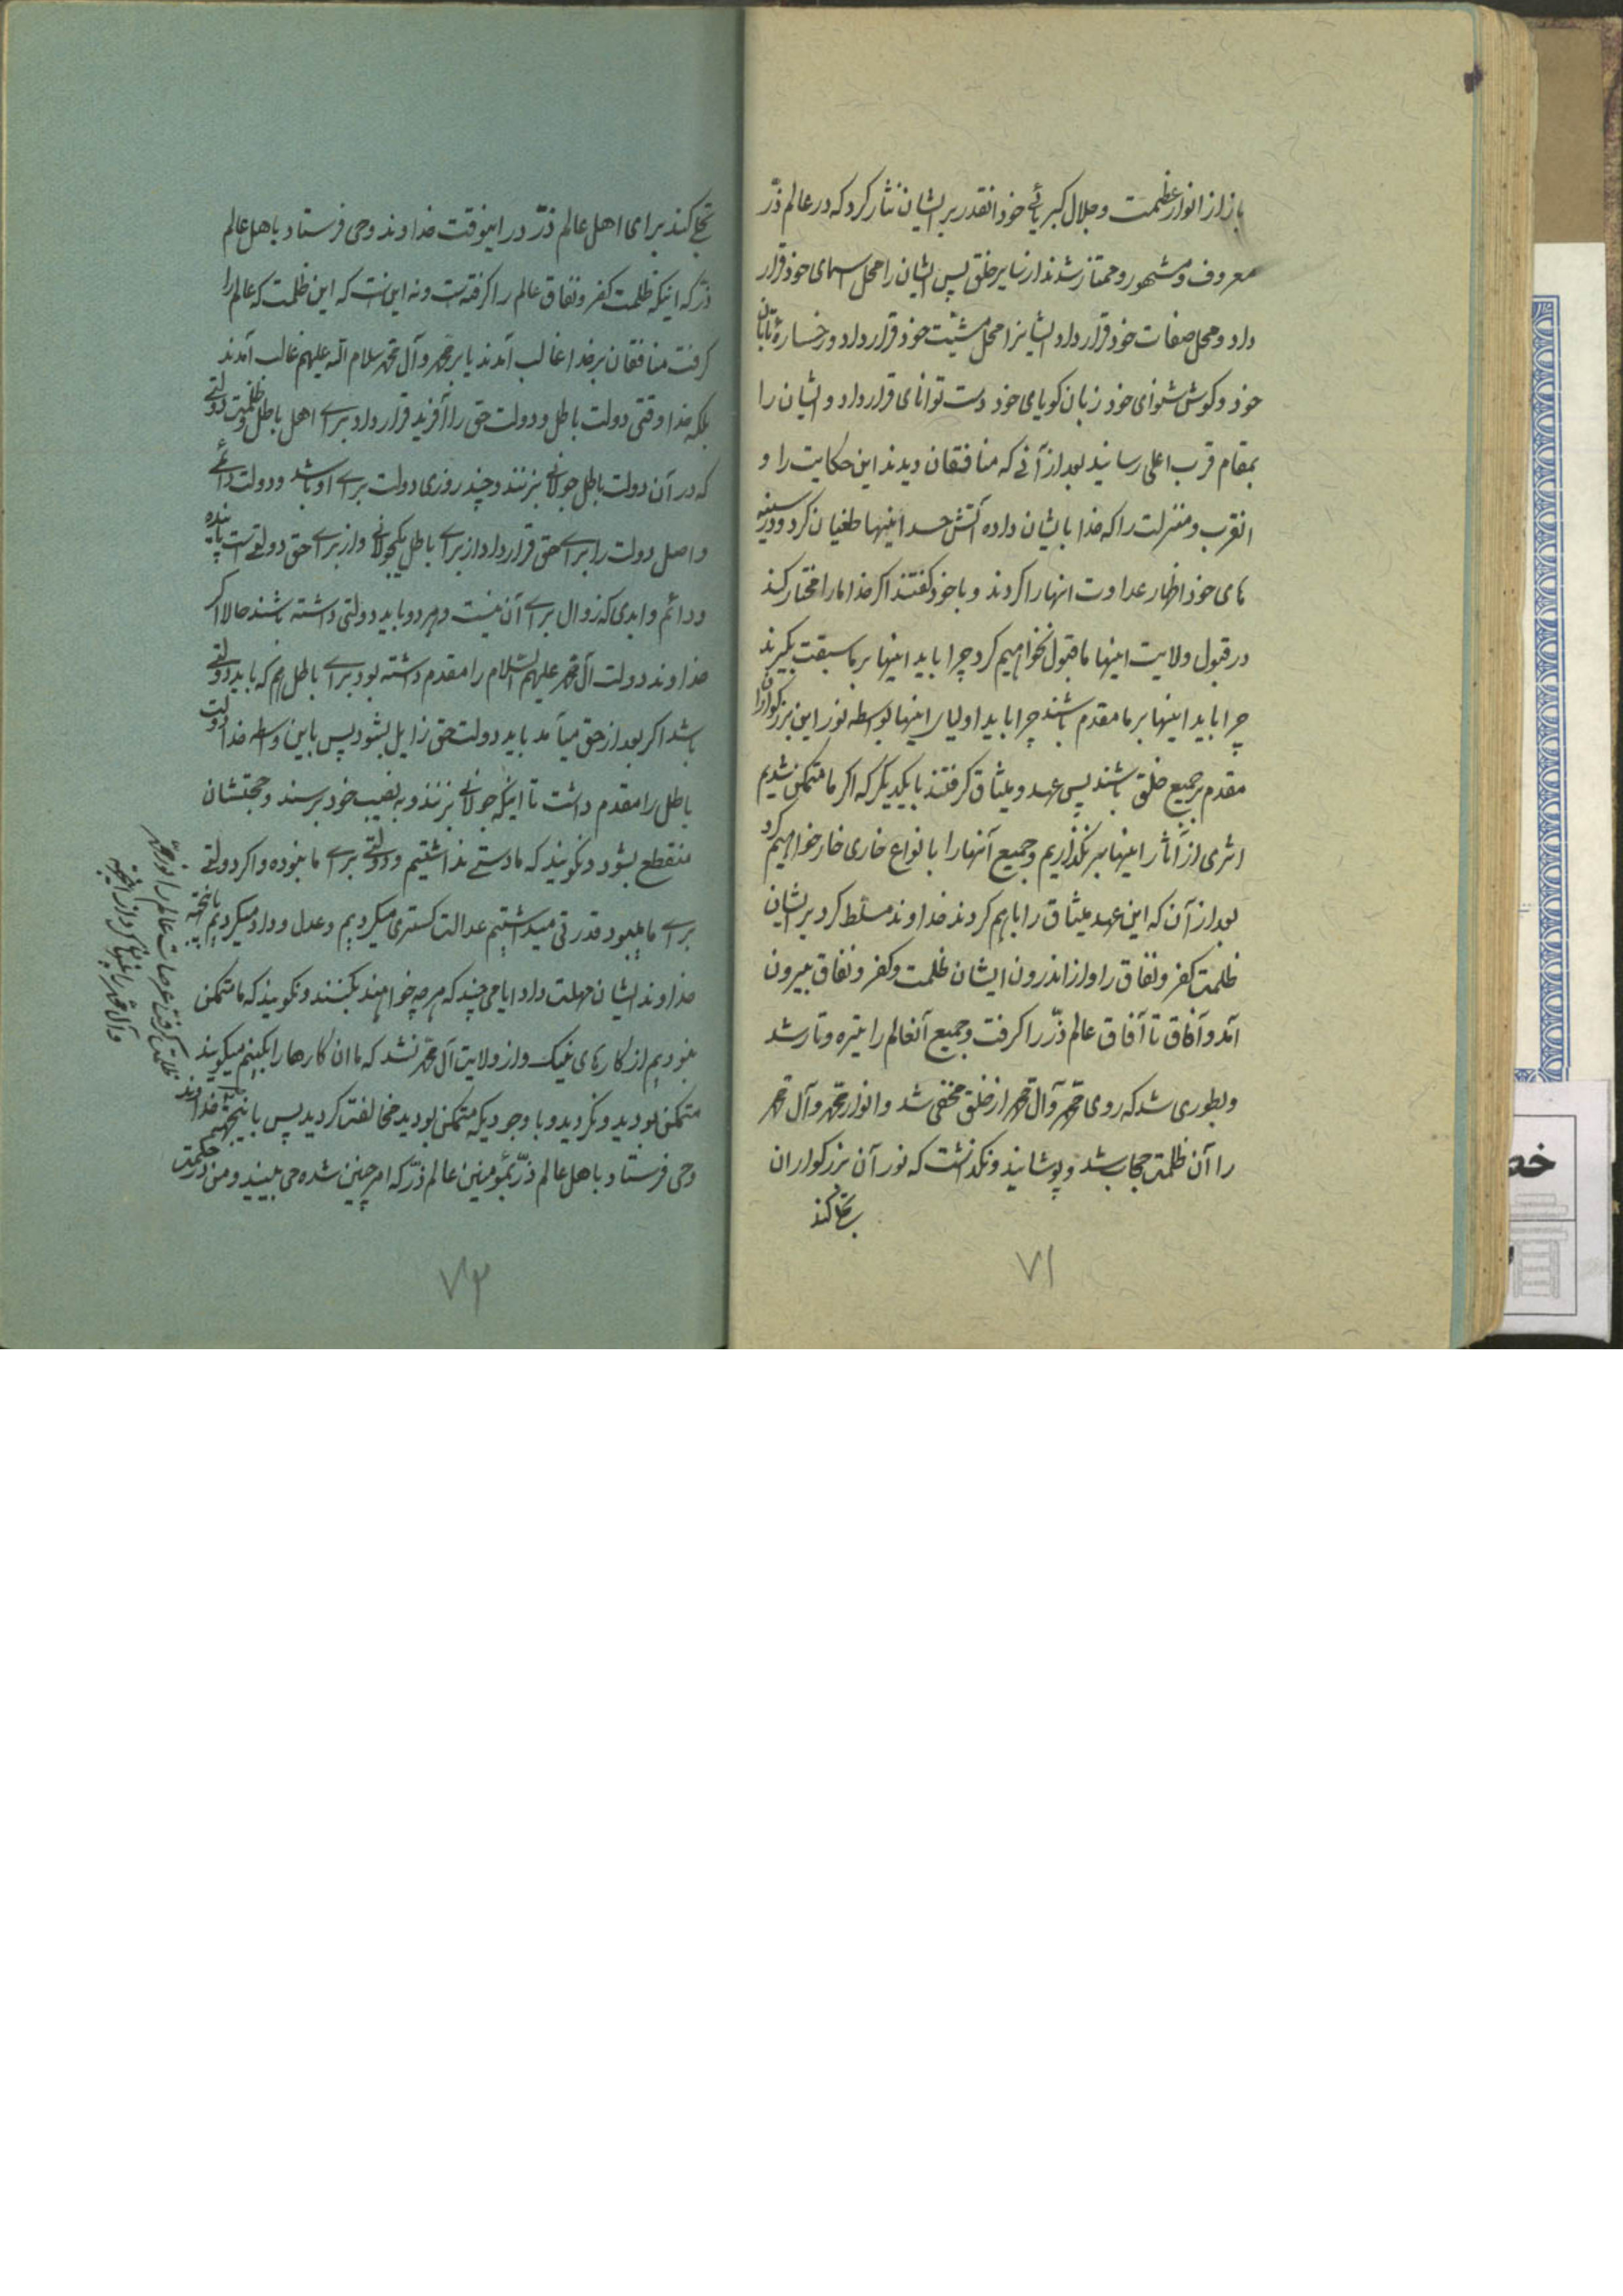 باز از انوار عظمت و جلال کبریائی خود انقدر بر ایشان نثار کرد که در عالم ذرّ
معروف و مشهور و ممتاز شدند از سایر خلق پس ایشان را محل اسمای خود قرار
داد و محل صفات خود قرار داد ایشانرا محل مشیّت خود قرار داد و رخساره تابان
خود و کوش شنوای خود زبان کویای خود دست توانای قرار داد و ایشان را
بمقام قرب اعلی رسانید بعد از آنی که منافقان دیدند این حکایت را و
انقرب و منزلت را که خدا بایشان داده آتش حسد اینها طغیان کرد و در سینه
های خود اظهار عداوت انها را کردند و با خود کفتند اکر خدا ما را مختار کند
در قبول ولایت اینها ما قبول نخواهیم کرد چرا باید اینها بر ما سبقت بکیرند
چرا باید اینها بر ما مقدم باشند چرا باید اولیای اینها بواسطه نور این بزرکواران
مقدم بر جمیع خلق باشند پس عهد و میثاق کرفتند با یکدیکر که اکر ما متمکن شدیم
اثری از آثار اینها بر نکذاریم و جمیع آنها را بانواع خاری خار خواهیم کرد
بعد از آن که این عهد میثاق را باهم کردند خداوند مسلط کرد بر ایشان
ظلمت کفر و نفاق را و از اندرون ایشان ظلمت و کفر و نفاق بیرون
آمد و آفاق تا آفاق عالم ذرّ را کرفت و جمیع آنعالم را تیره و تار شد
و بطوری شد که روی محمّد و آل محمّد از خلق مخفی شد و انوار محمّد و آل محمّد
را آن ظلمت حجاب شد و پوشانید و نکذاشت که نور آن بزرکواران
تجلی کند
۷۱
تجلی کند برای اهل عالم ذرّ در اینوقت خداوند وحی فرستاد باهل عالم
ذرّ که اینکه ظلمت کفر و نفاق عالم را کرفته است و نه این است که این ظلمت که عالم را
کرفت منافقان بر خدا غالب آمدند یا بر محمّد و آل محمّد سلام الله علیهم غالب آمدند
بلکه خدا وقتی دولت باطل و دولت حق را آفرید قرار داد برای اهل باطل ظلمت و دولتی
که در آن دولت باطل جولانی بزنند و چند روزی دولت برای او باشد و دولت دائمی
و اصل دولت را برای حق قرار داد از برای باطل یکجولانی و از برای حق دولتی است پاینده
و دائم و ابدی که زوال برای آن نیست و هر دو باید دولتی داشته باشند حالا اکر
خداوند دولت آل محمّد علیهم السّلام را مقدم داشته بود برای باطل هم که باید دولتی
باشد اکر بعد از حق میآمد باید دولت حق زایل بشود پس باین واسطه خدا دولت
باطل را مقدم داشت تا اینکه جولانی بزنند و به نصیب خود برسند و حجتشان
منقطع بشود و نکویند که ما دستی نداشتیم و دولتی برای ما نبوده و اکر دولتی
برای ما میبود قدرتی میداشتیم عدالت کستری میکردیم و عدل و داد میکردیم باینجهة
خداوند ایشان مهلت داد ایامی چند که هر چه خواهند بکنند و نکویند که ما متمکن
نبودیم از کارهای نیک و از ولایت آل محمّد نشد که ما ان کارها را بکنیم میکویند
متمکن بودید و نکردید و با وجودیکه متمکن بودید مخالفت کردید پس باینجهة خداوند
وحی فرستاد باهل عالم ذرّ بمؤمنین عالم ذرّ که امر چنین شده می بینید و من از حکمت
ظلمت کرفت عرصات عالم را و نور محمّد
و آل محمّد را پنهان کرد از اینجهة
۷۲
خط